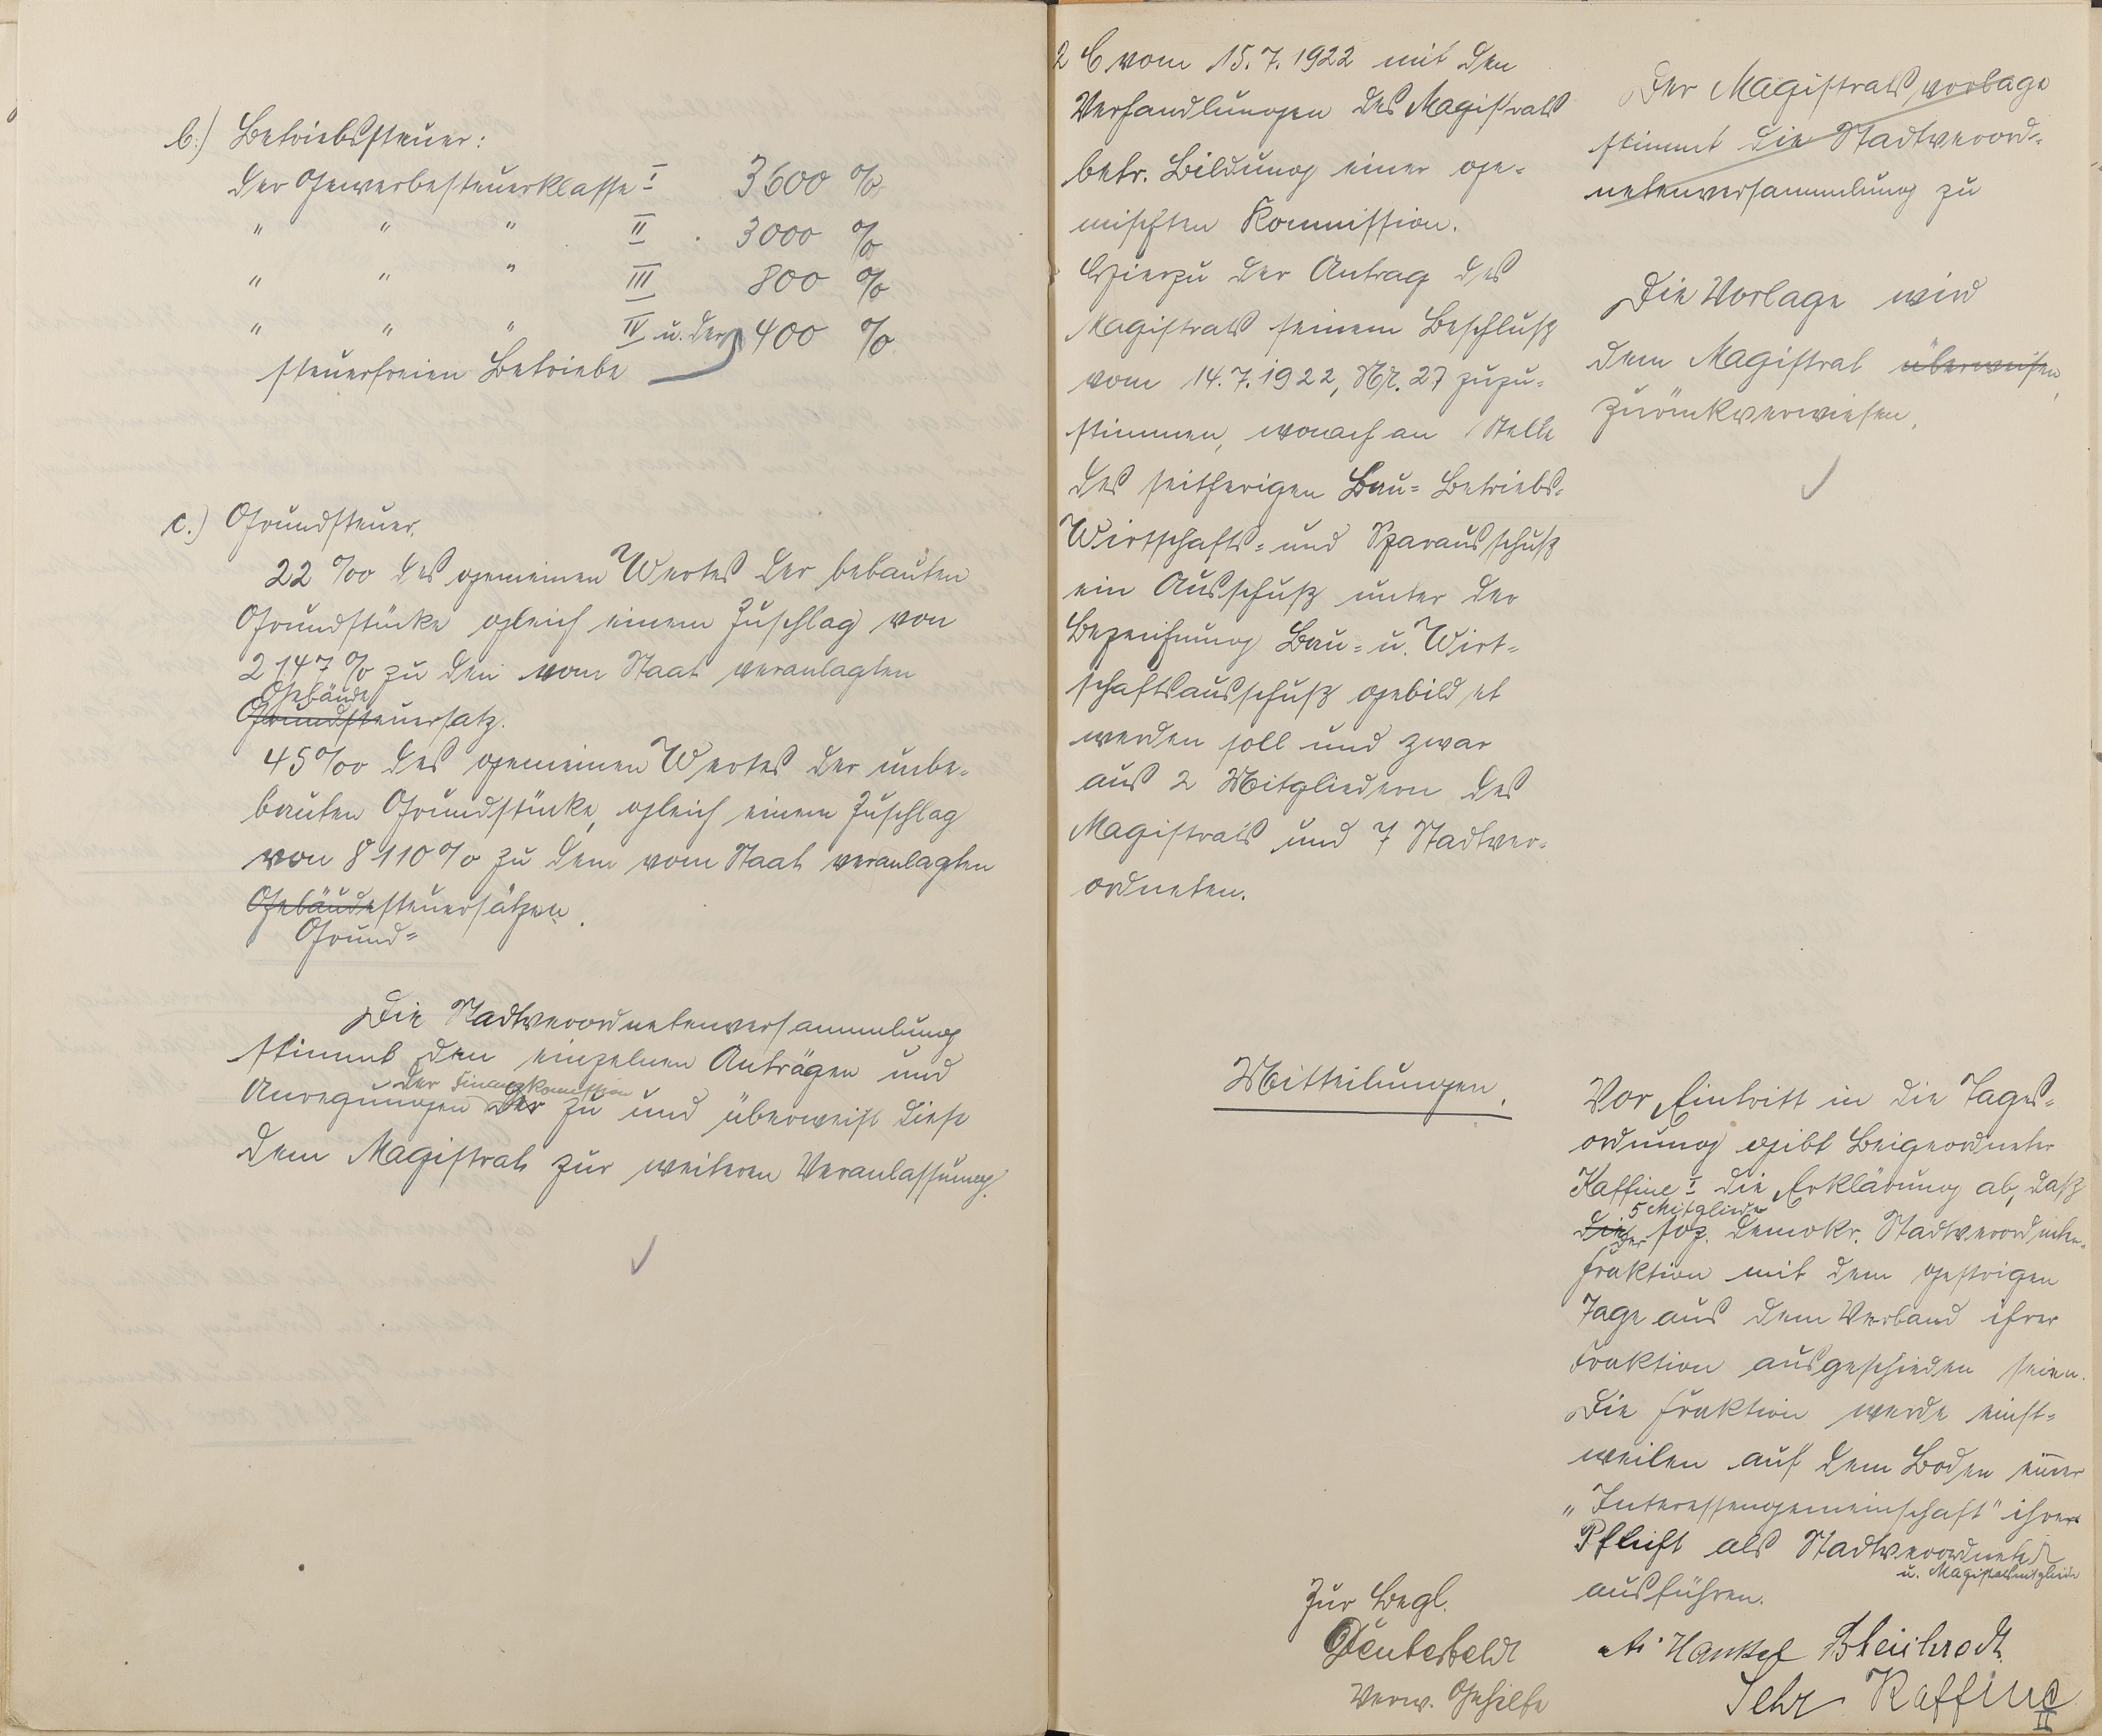 b.) Betriebssteuer:
der Gewerbesteuerklasse I 3600 %
" " " II 3000 %
" " " III 800 %
" " " IV u. der 400 %
steuerfreien Betriebe
c.) Grundsteuer.
22 ‰ des gemeinen Wertes der bebauten
Grundstücke gleich einem Zuschlag von
2147 % zu den vom Staat veranlagten
Gebäude
Grundsteuersatz.
45 ‰ des gemeinen Wertes der unbe-
bauten Grundstücke, gleich einem Zuschlag
von 8110 % zu dem vom Staat veranlagten
Gebäudesteuersätzen.
Grund=
Die Stadtverordnetenversammlung
stimmt den einzelnen Anträgen und
der Finanzkommission
Anregungen der zu und überweist diese
dem Magistrat zur weiteren Veranlassung.
2 C vom 15.7.1922 mit den
Verhandlungen des Magistrats
betr. Bildung einer ge-
mischten Kommission.
Hierzu der Antrag des
Magistrats seinem Beschluß
vom 14.7.1922, Nr. 27 zuzu-
stimmen, wonach an Stelle
des seitherigen Bau= Betriebs=
Wirtschafts= und Sparausschuß
ein Ausschuß unter der
Bezeichnung Bau= u. Wirt-
schaftsausschuß gebildet
werden soll und zwar
aus 2 Mitgliedern des
Magistrats und 7 Stadtver-
ordneten.
Der Magistratsvorlage
stimmt die Stadtverord-
netenversammlung zu
Die Vorlage wird
dem Magistrat überweisen,
zurückverwiesen.
Mitteilungen.
Vor Eintritt in die Tages-
ordnung gibt Beigeordneter
Kaffine I die Erklärung ab, daß
5 Mitglieder
die der soz. demokr. Stadtverordneten-
fraktion mit dem gestrigen
Tage aus dem Verband ihrer
Fraktion ausgeschieden seien.
Die Fraktion werde einst-
weilen auf dem Boden einer
"Interessengemeinschaft" ihrer
Pflicht als Stadtverordnete
u. Magistratsmitglieder
ausführen.
Zur Begl.
Verw. Gehilfe
Hankel Bleichrodt
Sehr Kaffine II